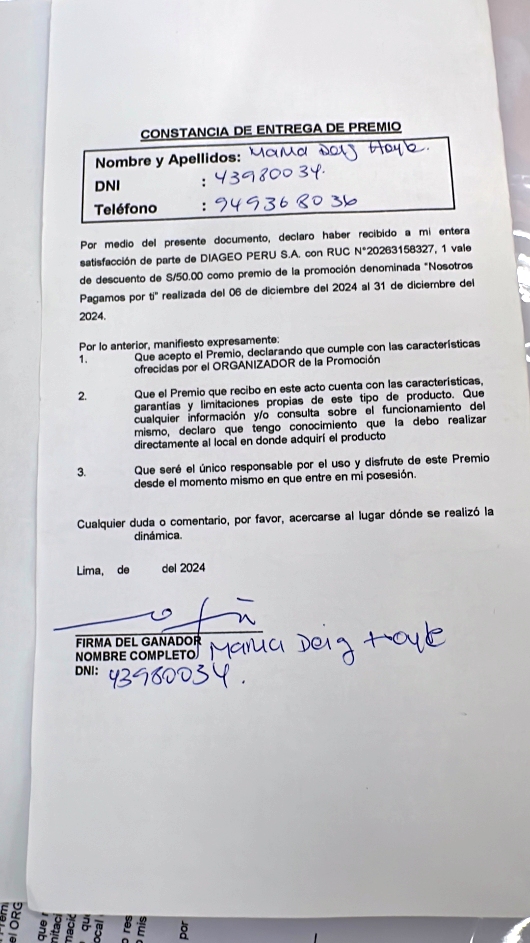 CONSTANCIA DE ENTREGA DE PREMIO
Nombre y Apellidos: Maria Deig Hoyle.
DNI : 43980034.
Teléfono : 949368036
Por medio del presente documento, declaro haber recibido a mi entera
satisfacción de parte de DIAGEO PERU S.A. con RUC N°20263158327, 1 vale
de descuento de S/50.00 como premio de la promoción denominada "Nosotros
Pagamos por ti" realizada del 06 de diciembre del 2024 al 31 de diciembre del
2024.
Por lo anterior, manifiesto expresamente:
1. Que acepto el Premio, declarando que cumple con las características
ofrecidas por el ORGANIZADOR de la Promoción
2. Que el Premio que recibo en este acto cuenta con las características,
garantías y limitaciones propias de este tipo de producto. Que
cualquier información y/o consulta sobre el funcionamiento del
mismo, declaro que tengo conocimiento que la debo realizar
directamente al local en donde adquirí el producto
3. Que seré el único responsable por el uso y disfrute de este Premio
desde el momento mismo en que entre en mi posesión.
Cualquier duda o comentario, por favor, acercarse al lugar dónde se realizó la
dinámica.
Lima, de del 2024
FIRMA DEL GANADOR
NOMBRE COMPLETO Maria Deig Hoyle
DNI: 43980034.